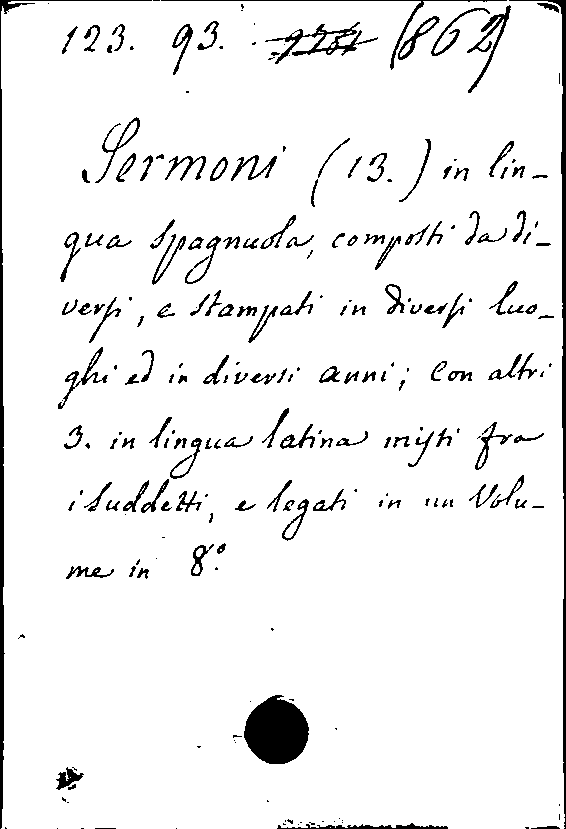 123. 93. (862)
Sermoni (13.) in lin-
gua spagnuola, composti da di-
versi, e stampati in diversi luo-
ghi ed in diversi anni; con altri
3. in lingua latina misti fra
i suddetti, e legati in un Volu-
me in 8.º